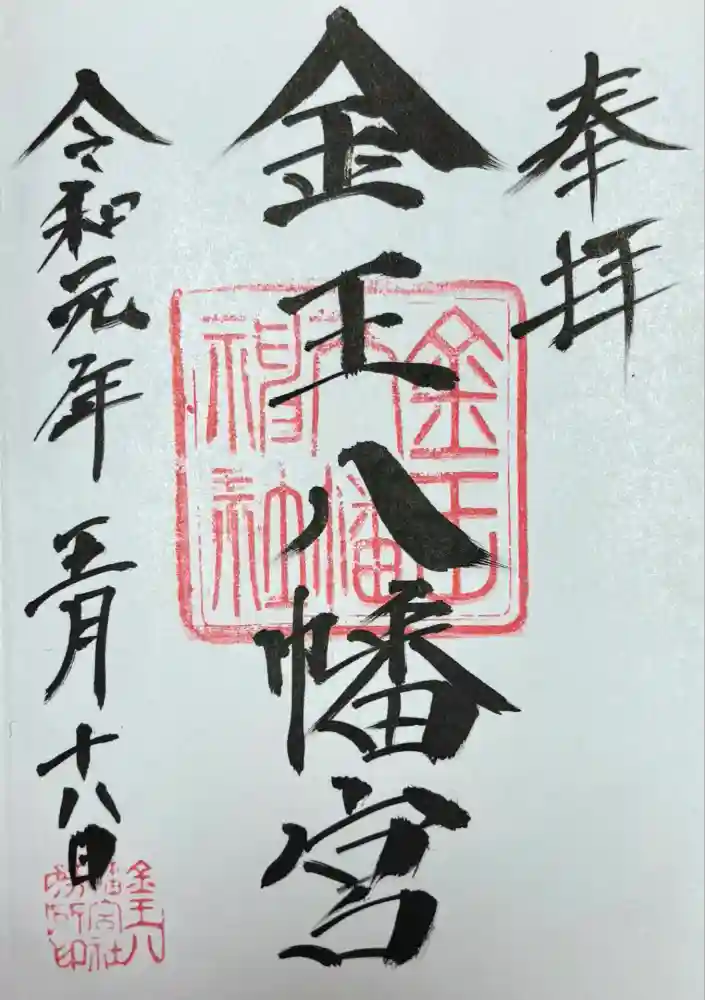 奉拝
金王八幡宮
令和元年 五月十八日
金王八幡神社
金王八幡宮社務所印